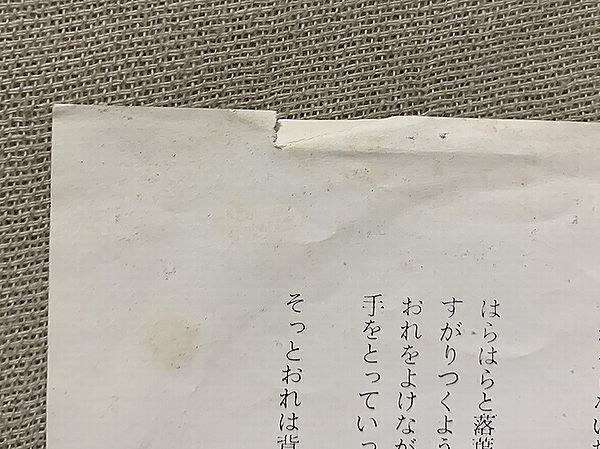 はらはらと落葉
すがりつくよう
おれをよけなが
手をとっていっ
そっとおれは背